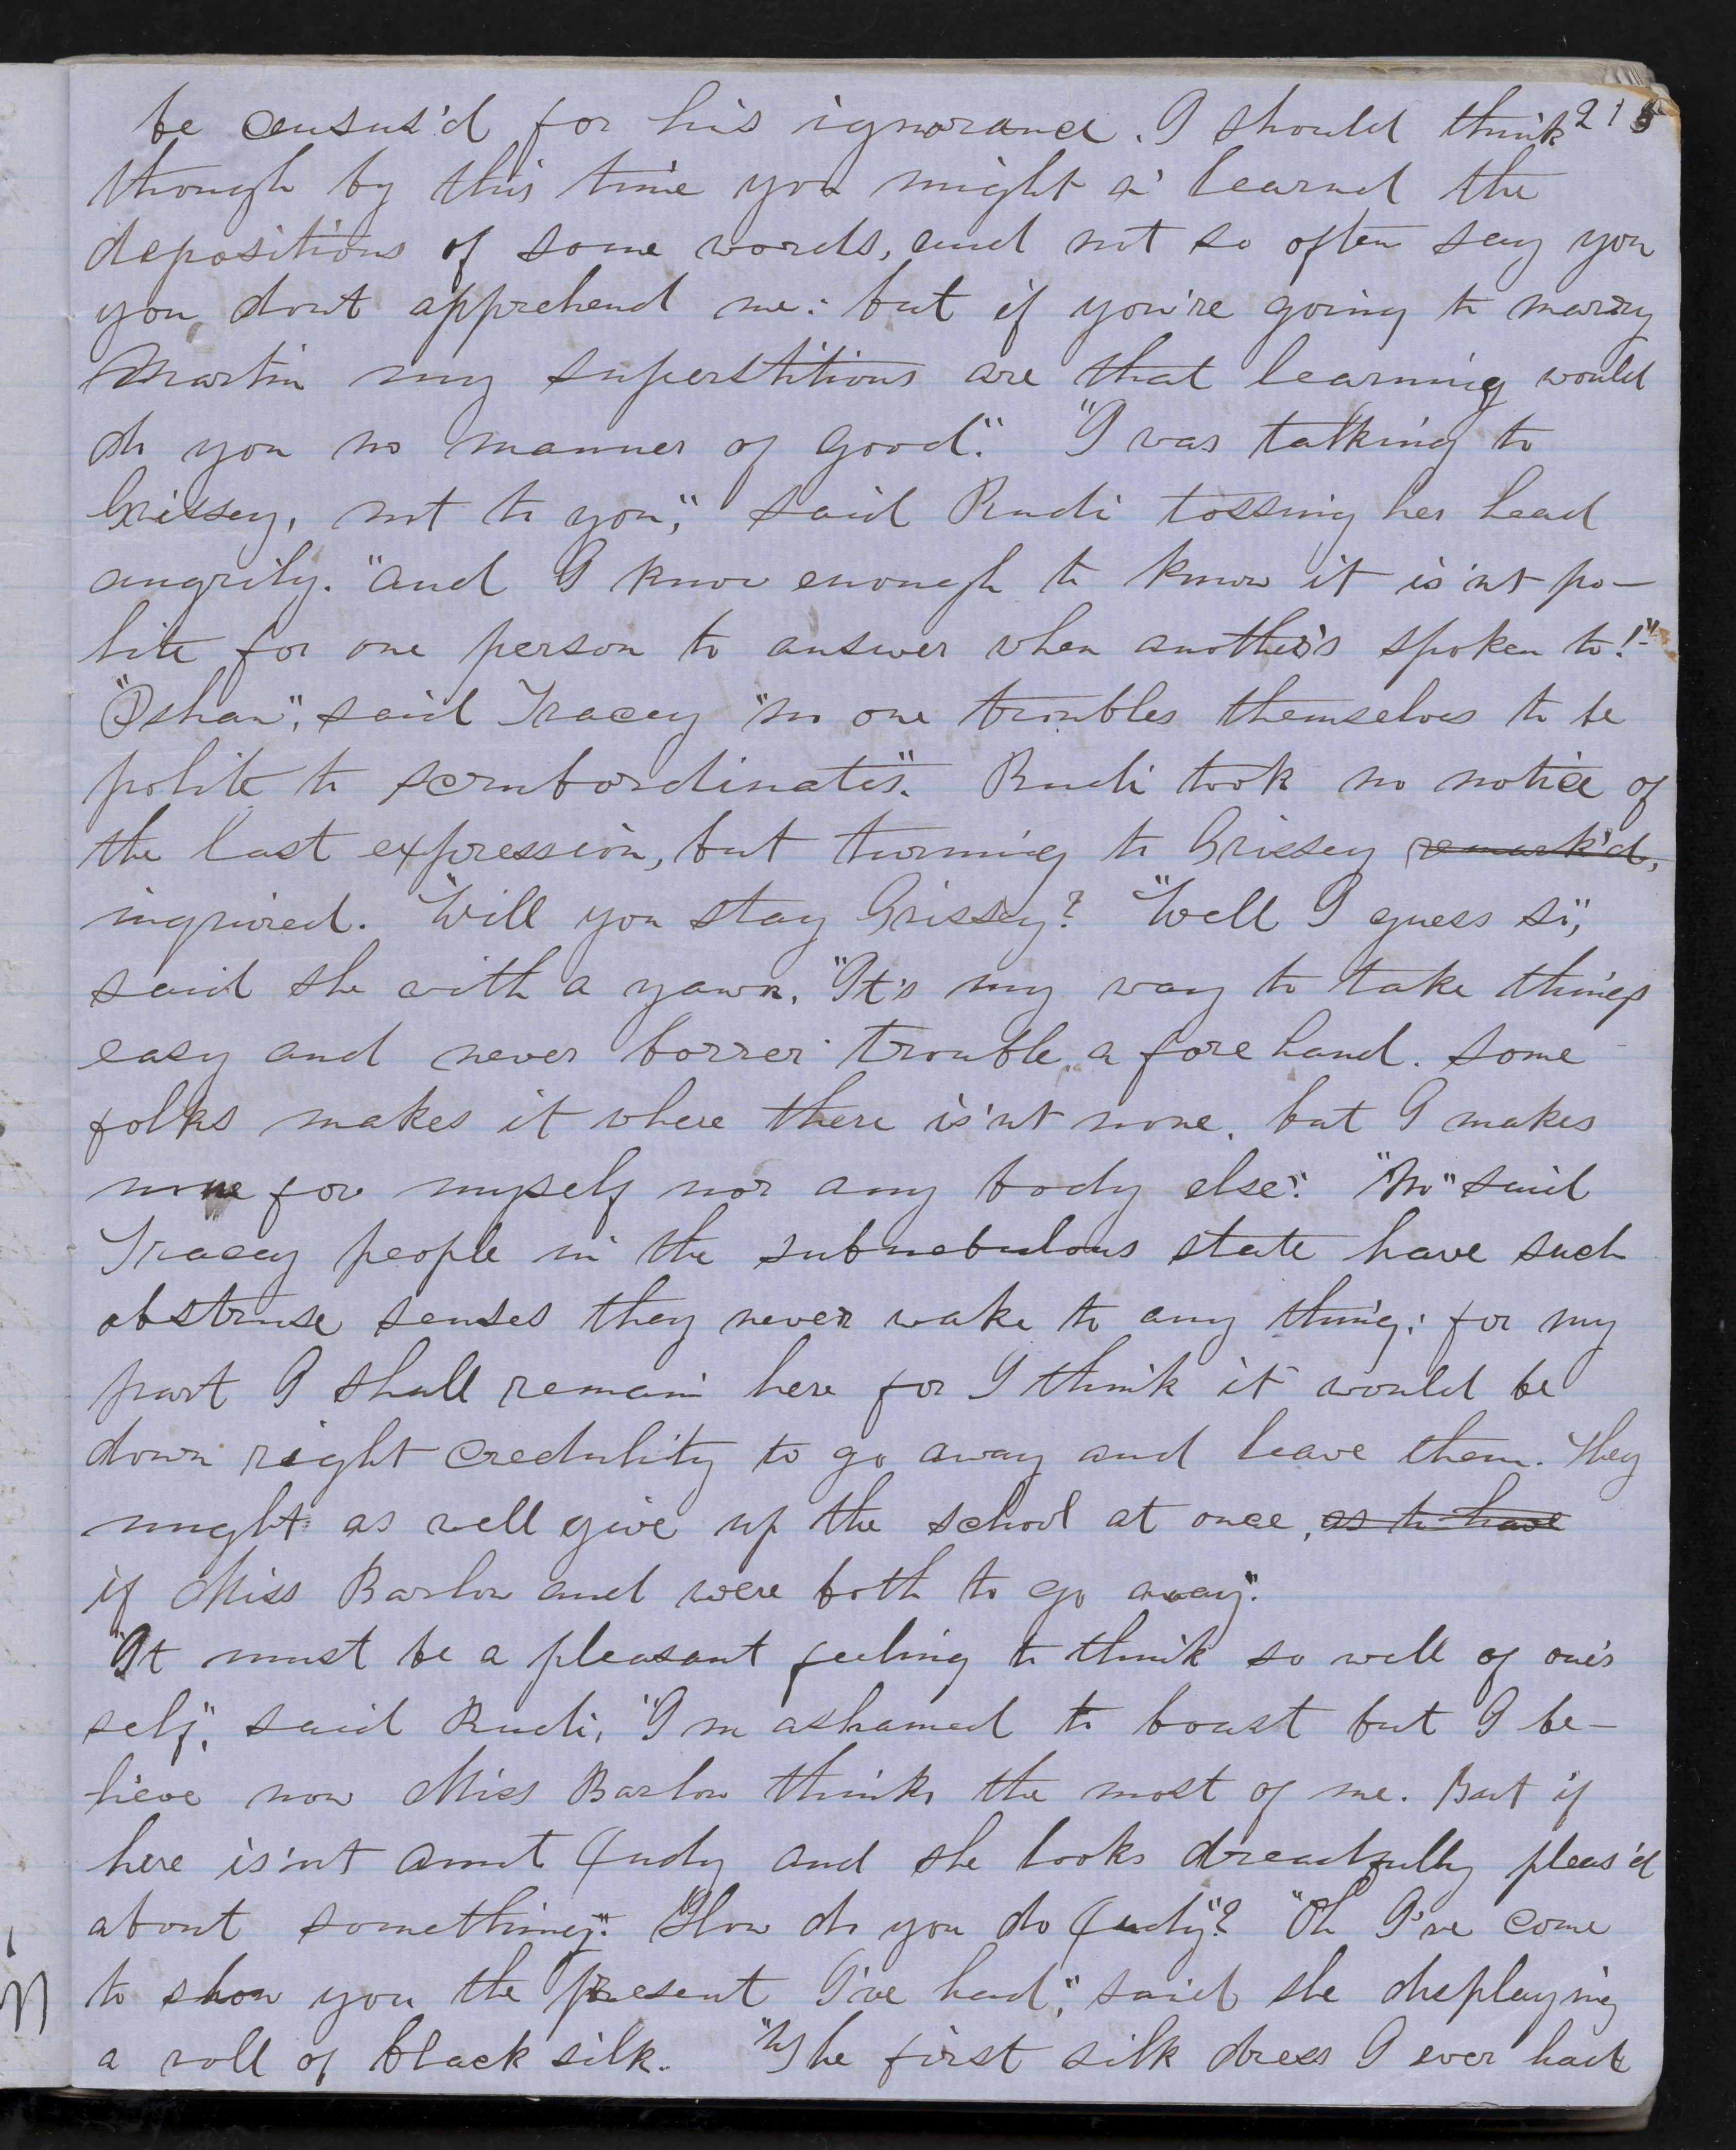 be census'd for his ignorance. I should think 215
though by this time you might a' learnd the
depositions of some words, and not so often say you
you dont apprehend me: but if you're going to marry
Martin my superstitions are that learning would
do you no manner of good." "I was talking to
Grissey, not to you," said Rudi tossing her head
angrily. "and I know enough to know it is'nt po-
lite for one person to answer when another's spoken to!"
"Pshaw", said Tracey "no one troubles themselves to be
polite to scrubordinates". Rudi took no notice of
the last expression, but turning to Grissey remark'd,
inquired. "Will you stay Grissey? "Well I guess so",
said she with a yawn. "It's my way to take things
easy and never borrer trouble a fore hand. Some
folks makes it where there is'nt none, but I makes
none for myself nor any body else". "No" said
Tracey people in the subnebulous state have such
obstruse senses they never wake to any thing; for my
part I shall remain here for I think it would be
down right credulity to go away and leave them. They
might as well give up the school at once, as to have
if Miss Barlow and were both to go away".
"It must be a pleasant feeling to think so well of one's
self", said Rudi, "I'm ashamed to boast but I be-
lieve now Miss Barlow thinks the most of me. But if
here is'nt aunt Judy and she looks dreadfully pleas'd
about something". "How do you do Judy"? "Oh I've come
to show you the present I've had", said she displaying
a roll of black silk. "The first silk dress I ever had